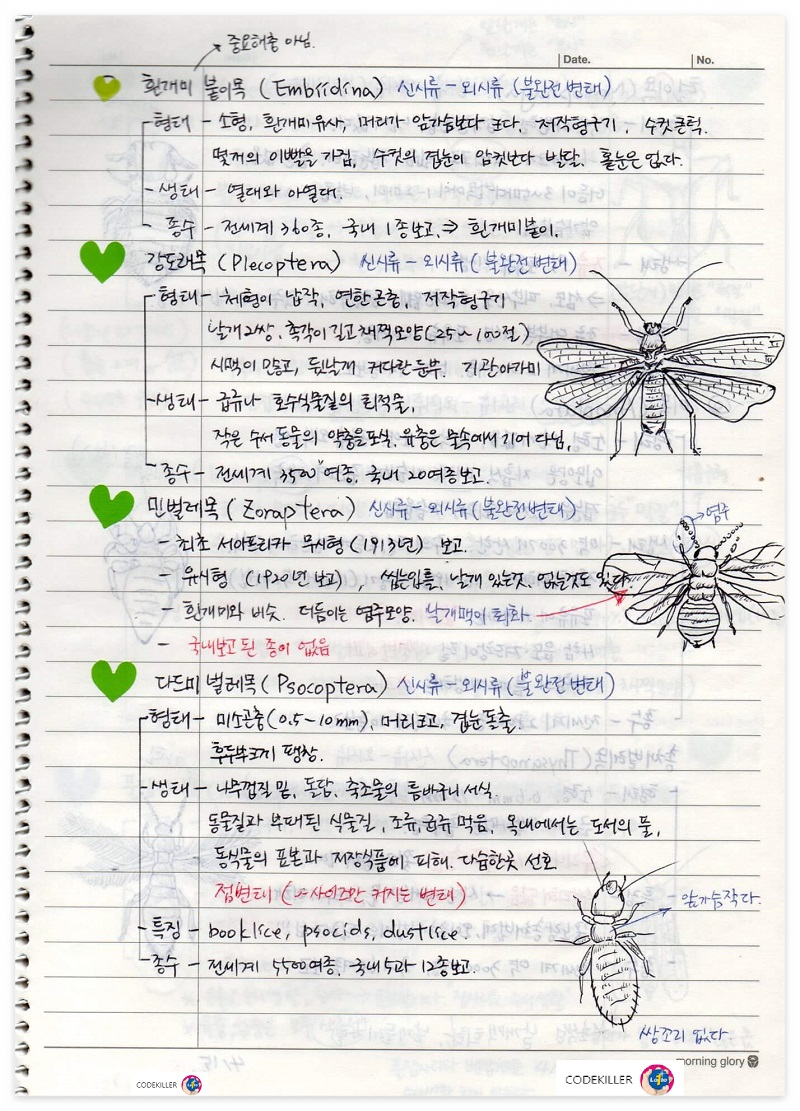 중요해충 아님.
Date. No.
흰개미 붙이목 (Embiidina) 신시류 - 외시류 (불완전변태)
형태 - 소형, 흰개미유사, 머리가 앞가슴보다 크다, 저작형구기, 수컷큰턱.
몇개의 이빨을 가짐, 수컷의 겹눈이 암컷보다 발달. 홑눈은 없다.
생태 - 열대와 아열대.
종수 - 전세계 360종, 국내 1종보고. ⇒ 흰개미붙이.
강도래목 (Plecoptera) 신시류 - 외시류 (불완전변태)
형태 - 체형이 납작, 연한곤충, 저작형구기
날개2쌍, 촉각이 길고 채찍모양 (25~100절)
시맥이 많고, 뒷날개 커다란 둔부. 기관아가미
생태 - 급류나 호수식물질의 퇴적물,
작은 수서동물의 약충을포식. 유충은 물속에서 기어 다님.
종수 - 전세계 3500여종, 국내 20여종보고.
민벌레목 (Zoraptera) 신시류 - 외시류 (불완전변태)
염주
- 최초 서아프리카 무시형 (1913년) 보고.
- 유시형 (1920년 보고), 씹는입틀, 날개 있는것, 없는것도 있다.
- 흰개미와 비슷. 더듬이는 염주모양. 날개맥이 퇴화
- 국내보고 된 종이 없음
다듬이 벌레목 (Psocoptera) 신시류 - 외시류 (불완전변태)
형태 - 미소곤충 (0.5~10mm), 머리크고, 겹눈돌출.
후두부크게 팽창.
생태 - 나무껍질 밑, 돌담, 축조물의 틈바구니 서식.
동물질과 부패된 식물질, 조류, 균류 먹음, 옥내에서는 도서의 풀,
동식물의 표본과 저장식품에 피해. 다습한곳 선호
점변태 (사이즈만 커지는 변태)
앞가슴작다.
특징 - booklice, psocids, dustlice.
종수 - 전세계 5500여종, 국내5과 12종보고.
쌍꼬리 없다
morning glory
CODEKILLER
CODEKILLER